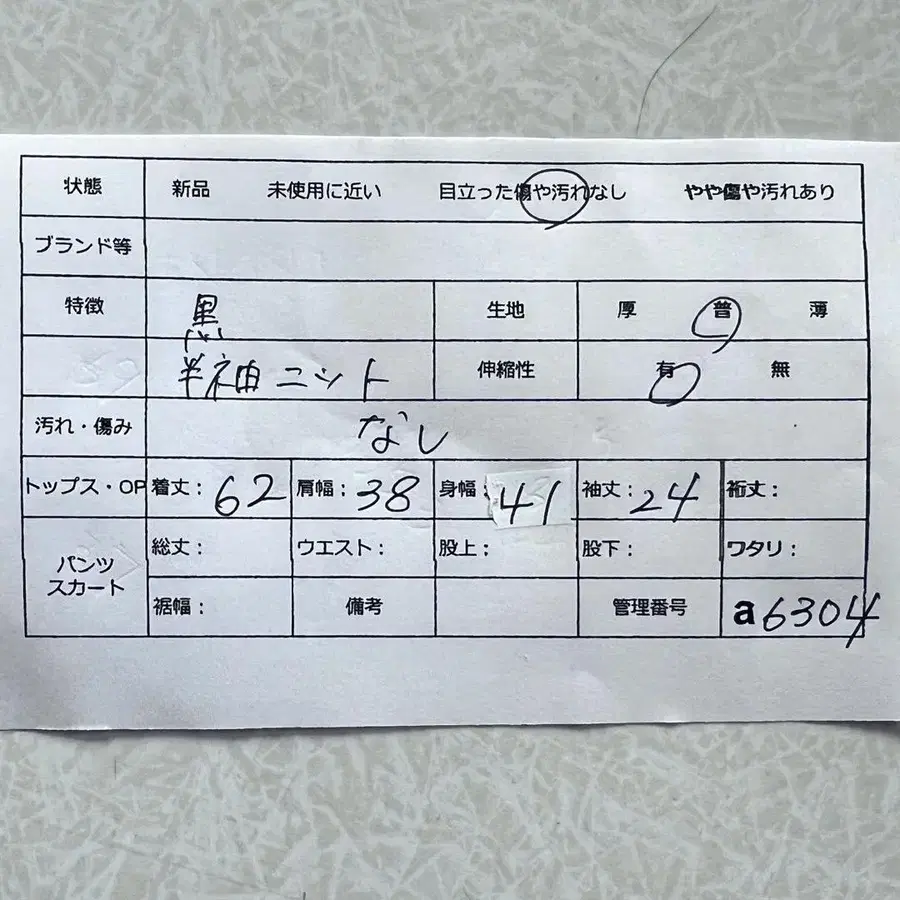 状態 新品 未使用に近い 目立った傷や汚れなし やや傷や汚れあり
ブランド等
特徴 黒 生地 厚 普 薄
半袖ニット 伸縮性 有 無
汚れ・傷み なし
トップス・OP 着丈: 62 肩幅: 38 身幅: 41 袖丈: 24 裄丈:
パンツ スカート 総丈: ウエスト: 股上: 股下: ワタリ:
裾幅: 備考 管理番号 a6304